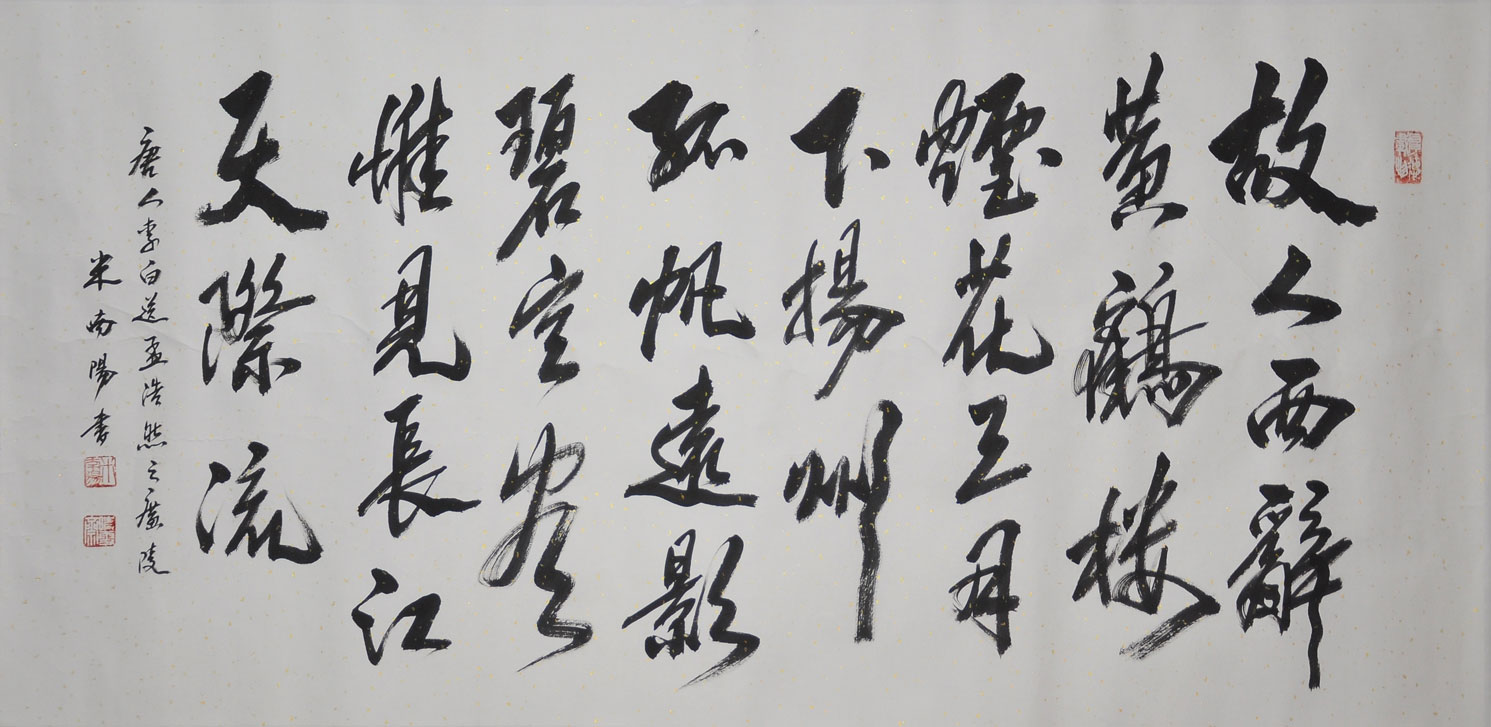 故人西辭
黃鶴樓
煙花三月
下揚州
孤帆遠影
碧空盡
惟見長江
天際流
唐人李白送孟浩然之廣陵
米南陽書